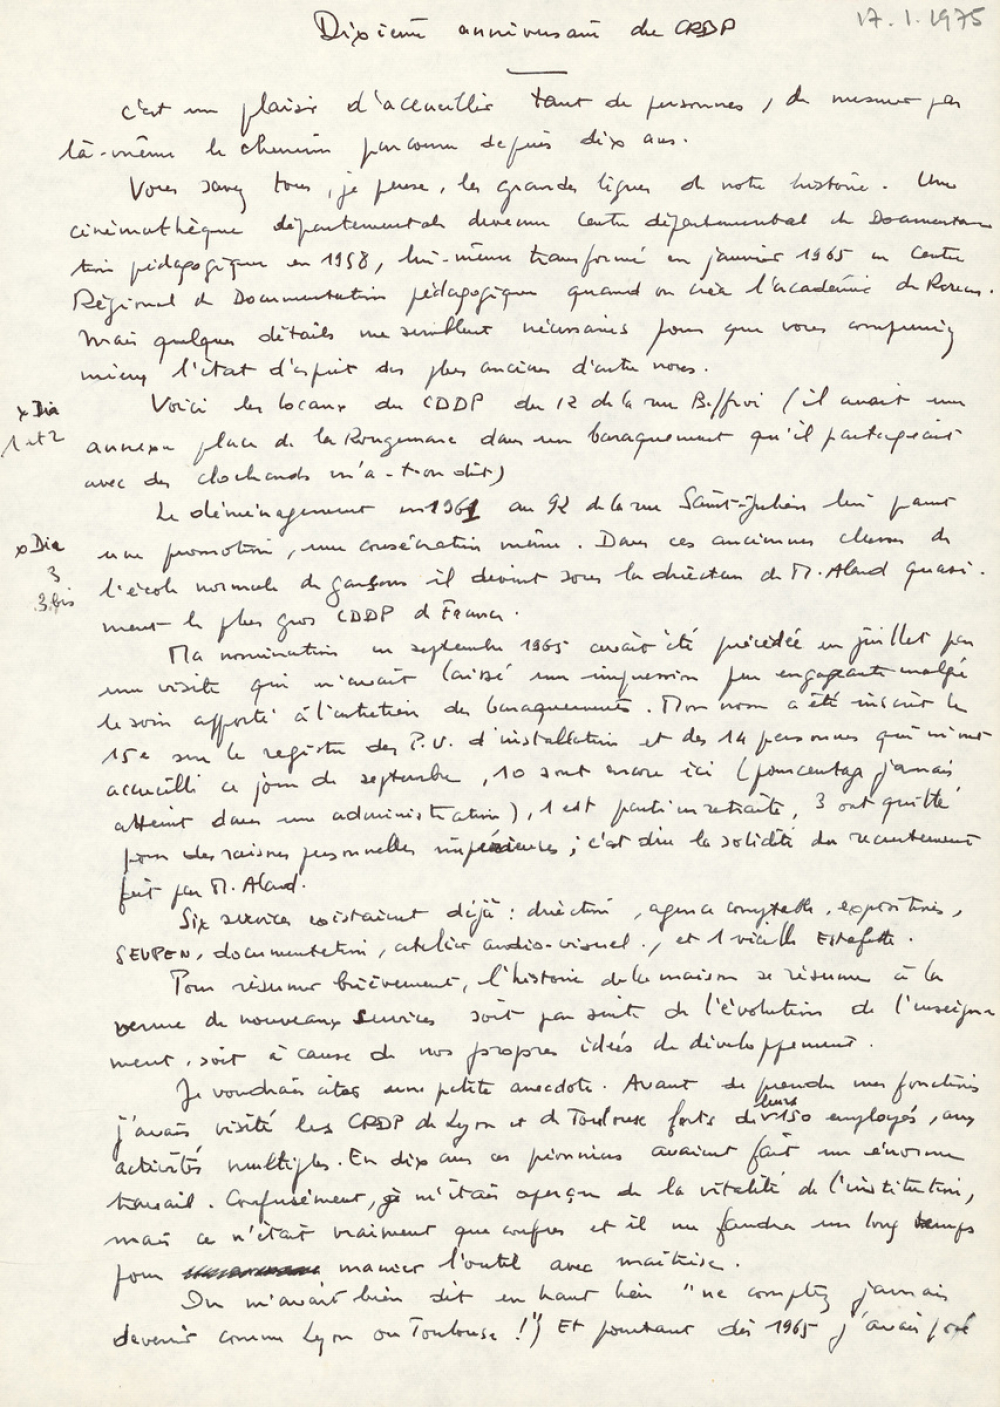 17.1.1975
Dixième anniversaire du CRDP
c'est un plaisir d'accueillir tant de personnes, de mesurer par
là-même le chemin parcouru depuis dix ans.
Vous savez tous, je pense, les grandes lignes de notre histoire. Une
cinémathèque départementale devenue Centre départemental de Documenta
tion pédagogique en 1958, lui-même transformé en janvier 1965 en Centre
Régional de Documentation pédagogique quand on créa l'académie de Rouen.
Mais quelques détails me semblent nécessaires pour que vous compreniez
mieux l'état d'esprit des plus anciens d'entre nous.
x Dia
1 et 2
Voici les locaux du CDDP du 12 de la rue Beffroi (il avait une
annexe place de la Rougemare dans un baraquement qu'il partageait
avec des clochards m'a-t-on dit)
Le déménagement en 1961 au 92 de la rue Saint-Julien lui parut
x Dia
3
3 bis
une promotion, une consécration même. Dans ces anciennes classes de
l'école normale de garçons il devint sous la direction de M. Aland quasi-
ment le plus gros CDDP de France.
Ma nomination en septembre 1965 avait été précédée en juillet par
une visite qui m'avait laissé une impression peu engageante malgré
le soin apporté à l'entretien des baraquements. Mon nom a été inscrit le
15e sur le registre des P.V. d'installation et des 14 personnes qui m'ont
accueilli ce jour de septembre, 10 sont encore ici (pourcentage jamais
atteint dans une administration), 1 est parti en retraite, 3 ont quitté
pour des raisons personnelles impérieuses ; c'est dire la solidité du recrutement
fait par M. Aland.
Six services existaient déjà : direction, agence comptable, expositions,
SEVPEN, documentation, atelier audio-visuel., et 1 vieille Estafette.
Pour résumer brièvement, l'histoire de la maison se résume à la
venue de nouveaux services soit par suite de l'évolution de l'enseigne
ment, soit à cause de nos propres idées de développement.
Je voudrais citer une petite anecdote. Avant de prendre mes fonctions
j'avais visité les CRDP de Lyon et de Toulouse forts de leurs 150 employés, aux
activités multiples. En dix ans ces pionniers avaient fait un énorme
travail. Confusément, je m'étais aperçu de la vitalité de l'institution,
mais ce n'était vraiment que confus et il me faudra un long temps
pour manier l'outil avec maîtrise.
On m'avait bien dit en haut lieu "ne comptez jamais
devenir comme Lyon ou Toulouse !") Et pourtant dès 1965 j'avais posé